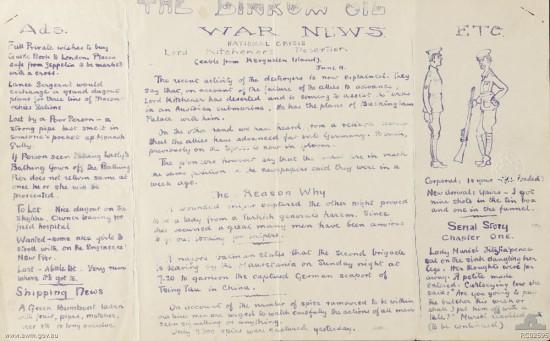 THE DINKUM OIL
Ads.
Full Private wishes to buy
safe from Zeppelin to be marked
with a cross.
Lance Sergeant would
exchange a ground dugout
Lost by a Poor Person - a
strong pipe last smelt in
someone's pocket up Monash
Gully.
If Person seen taking Lady's
Bathing Gown off the Bathing
Pier does not return same at
once he or she will be
prosecuted.
To Let Nice dugout on the
Skyline. Owner leaving for
field hospital
Wanted - some nice girls to
stroll with on the Engineers'
New Pier.
Lost - a Very warm
where it's got to
Shipping News
A Green Rowboat laden
with fruit, pipes, matches,
WAR NEWS.
NATIONAL CRISIS
Lord Kitchener's Desertion
(cable from Kerguelen Island).
June 11.
The recent activity of the destroyers is now explained. They
say that, on account of the failure of the allies to advance,
Lord Kitchener has deserted and is coming to assist the Turks
in an Austrian submarine. He has the plans of Buckingham
Palace with him.
On the other hand we have heard, from a
that the allies have advanced far into Germany.
previously on the is now in
The pioneers however say that the are in much
the same position as the newspapers said they were in a
week ago.
The Reason Why
A wounded sniper captured the other night proved
to be a lady from a Turkish general's harem. Since
she was secured a great many men have been anxious
to go out looking for snipers.
A major's batman states that the Second brigade
is leaving by the Mauretania on Sunday night at
7.30 to garrison the captured German seaport of
Tsing Tau in China.
On account of the number of spies rumoured to be within
our lines men are urged to watch carefully the actions of all men
seen signalling or anything.
Only 3500 spies were captured yesterday.
ETC.
Corporal; Is your rifle loaded?
New arrival; Yairs - I got
nine shots in the tin box
and one in the funnel.
Serial Story
Chapter One.
Lady Muriel
sat on the sink dangling her
legs. Her thoughts were far
away. A petite maid
entered. Curtseying low she
said: Are you going to pay
the butcher this week or
shall I put him off with a
tale? Muriel
(to be continued)
www.awm.gov.au
RC02595